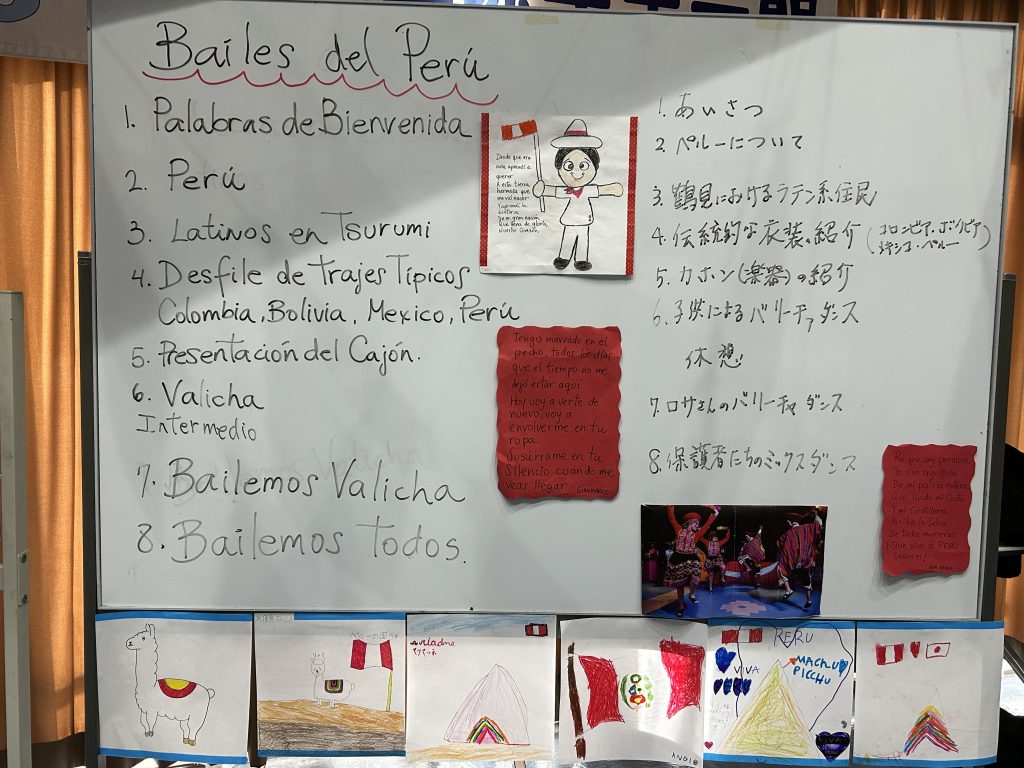 Bailes del Perú
1. Palabras de Bienvenida
2. Perú
3. Latinos en Tsurumi
4. Desfile de Trajes Típicos
Colombia, Bolivia, Mexico, Perú
5. Presentación del Cajón.
6. Valicha
Intermedio
7. Bailemos Valicha
8. Bailemos Todos.
Desde que era
niña aprendí a
querer
A esta tierra
hermosa que
me vió nacer
Y aprendí la
historia
De mi gran nación
Que llena de gloria
Nuestro Corazón
Tengo marcado en el
pecho, todos los días
que el tiempo no me
dejó estar aquí
Hoy voy a verte de
nuevo, voy a
envolverme en tu
ropa.
Susúrrame en tu
Silencio cuando me
veas llegar
GIANMARCO
1. あいさつ
2. ペルーについて
3. 鶴見におけるラテン系住民
4. 伝統的な衣装の紹介 (コロンビア・ボリビア
メキシコ・ペルー)
5. カホン(楽器)の紹介
6. 子供によるバリーチァダンス
休憩
7. ロサさんのバリーチャダンス
8. 保護者たちのミックスダンス
Por que soy peruano
Yo vivo orgullosa
De mi patria entera
Que linda mi Costa
Y mi Cordillera
Arriba la Selva
De todas maneras
¡Que viva el PERÚ
Señores!
ANGIE
PERU
VIVA
MACHU
PICCHU